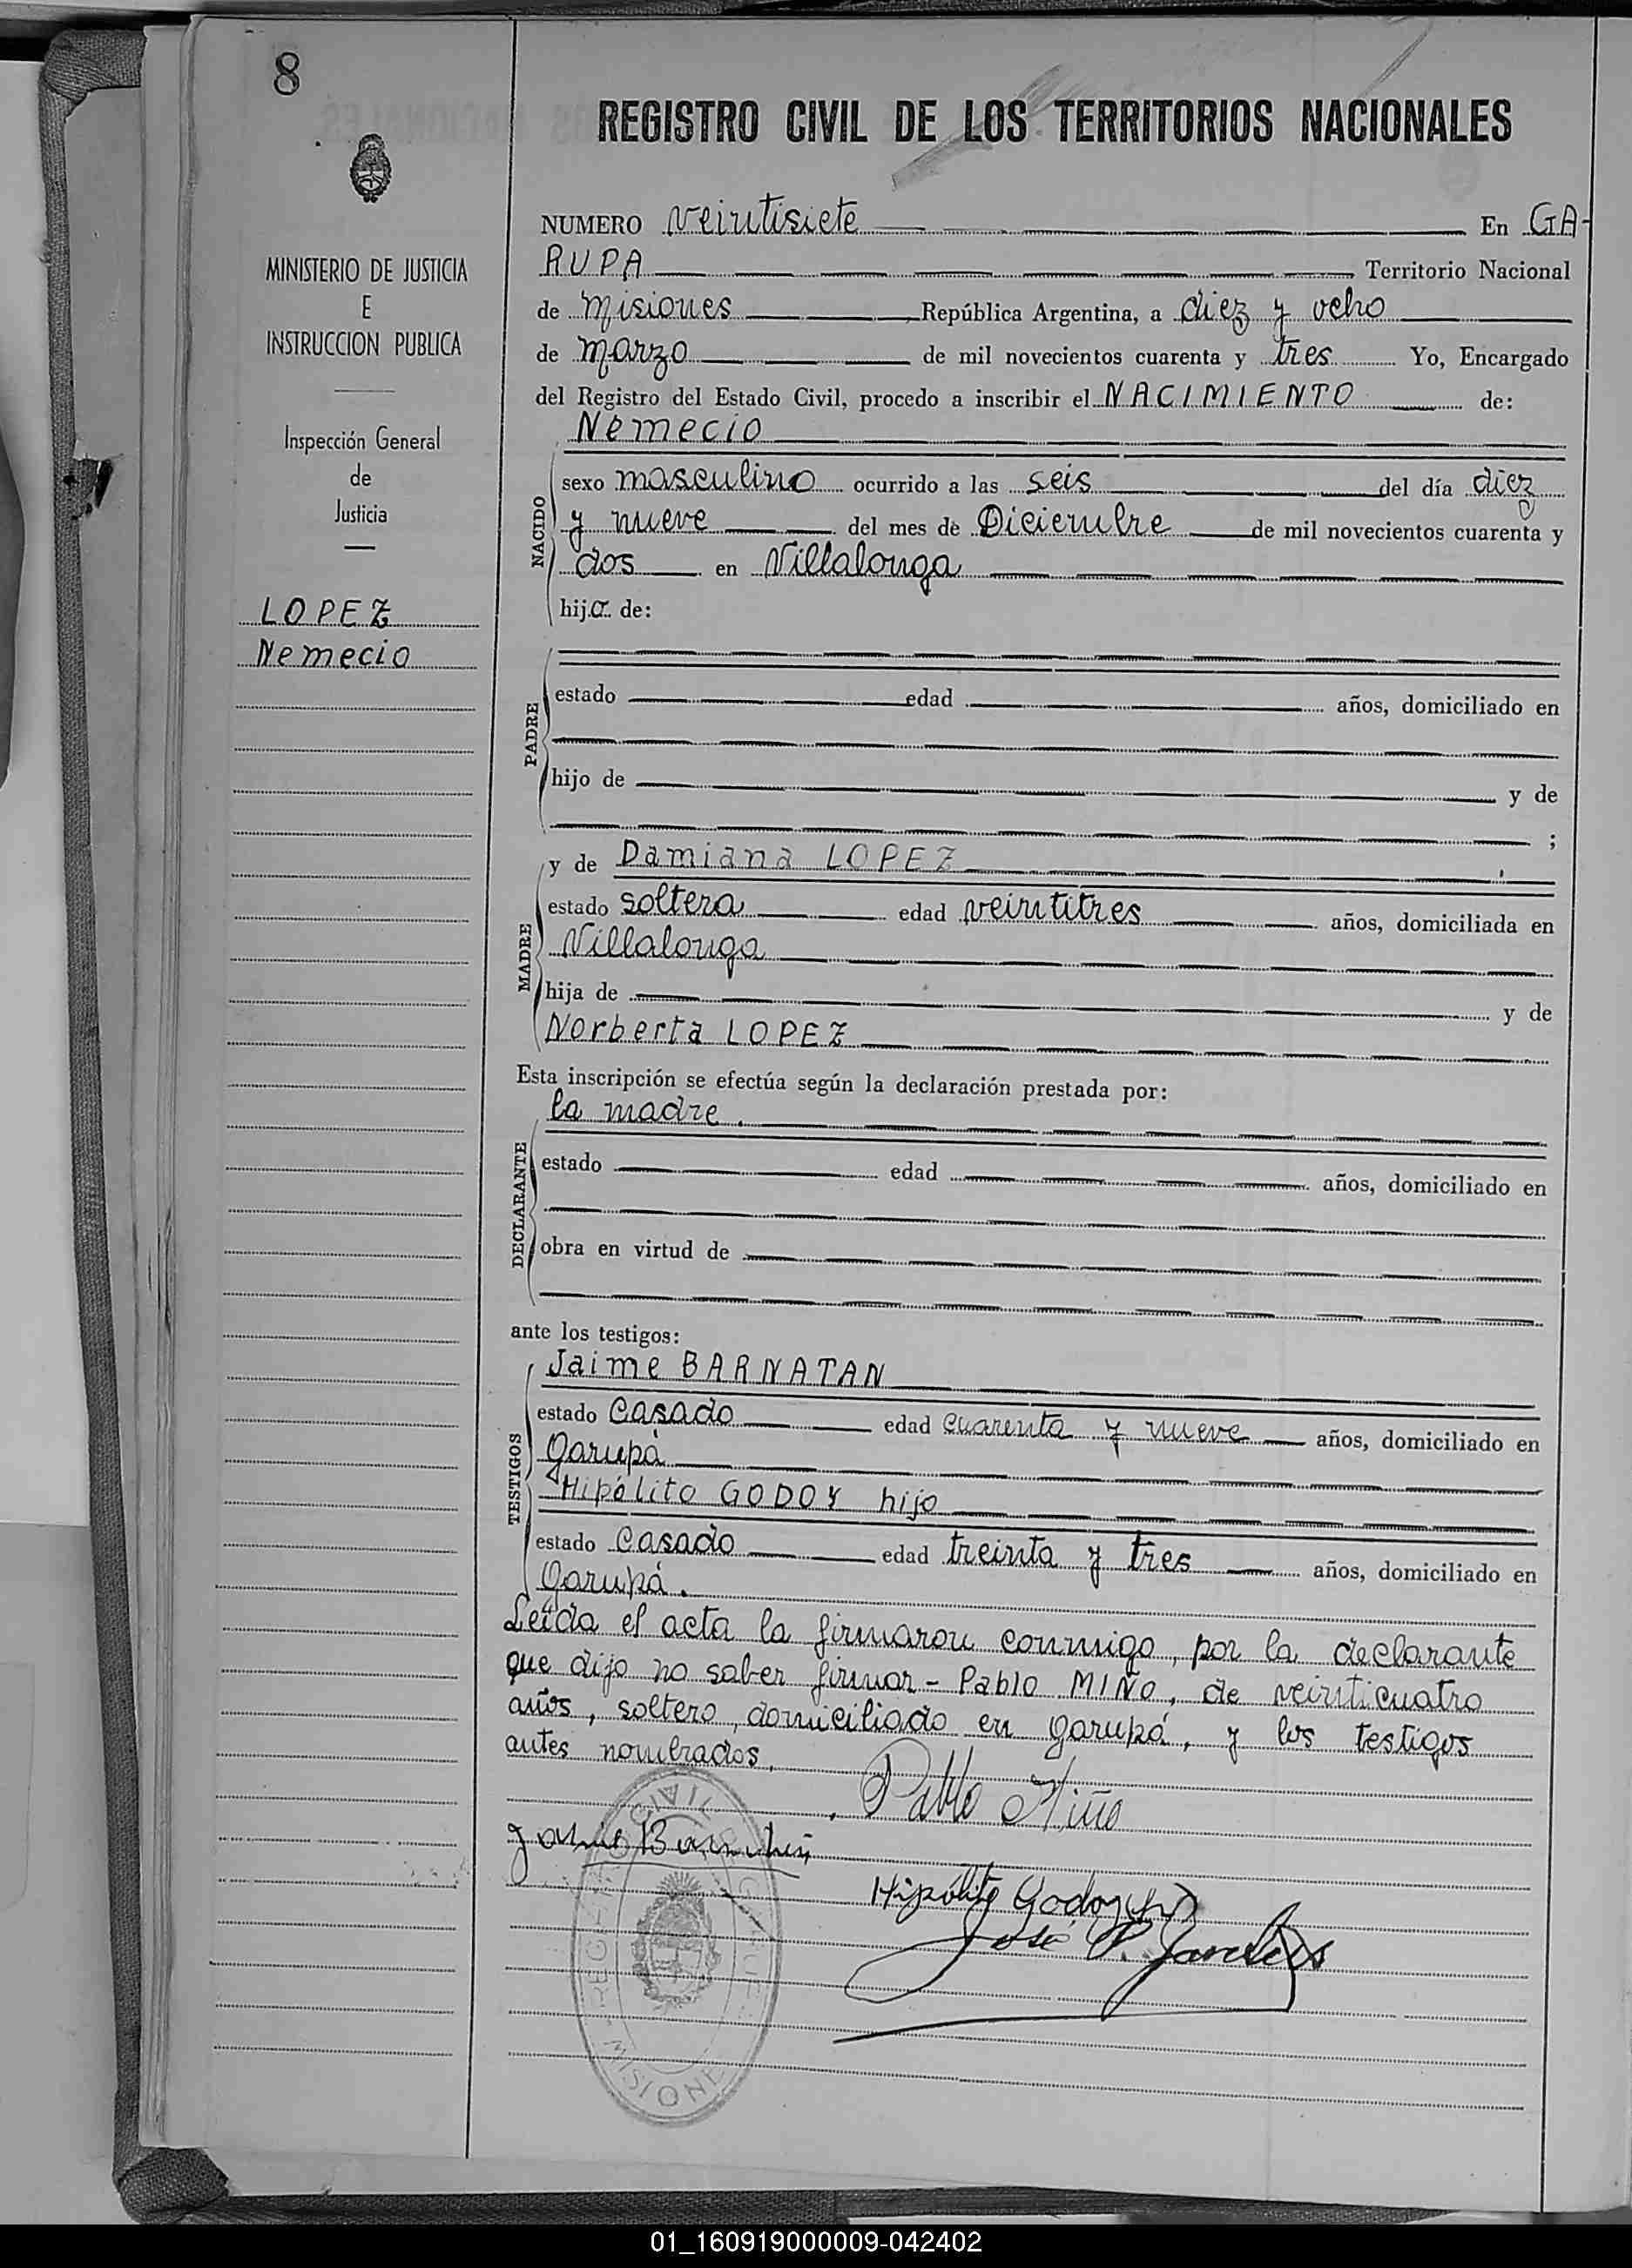 8
REGISTRO CIVIL DE LOS TERRITORIOS NACIONALES
MINISTERIO DE JUSTICIA
E
INSTRUCCION PUBLICA
Inspección General
de
Justicia
LOPEZ
Nemecio
NUMERO veintisiete En GA-
RUPA Territorio Nacional
de Misiones República Argentina, a diez y ocho
de marzo de mil novecientos cuarenta y tres Yo, Encargado
del Registro del Estado Civil, procedo a inscribir el NACIMIENTO de:
Nemecio
NACIDO
sexo masculino ocurrido a las seis del día diez
y nueve del mes de Diciembre de mil novecientos cuarenta y
dos en Villalonga
hijo de:
PADRE
estado edad años, domiciliado en
hijo de y de
;
MADRE
y de Damiana LOPEZ
estado soltera edad veintitres años, domiciliada en
Villalonga
hija de y de
Norberta LOPEZ
Esta inscripción se efectúa según la declaración prestada por:
la madre.
DECLARANTE
estado edad años, domiciliado en
obra en virtud de
ante los testigos:
TESTIGOS
Jaime BARNATAN
estado Casado edad cuarenta y nueve años, domiciliado en
Garupá
Hipólito GODOY hijo
estado Casado edad treinta y tres años, domiciliado en
Garupá.
Leída el acta la firmaron conmigo, por la declarante
que dijo no saber firmar - Pablo MIÑO, de veinticuatro
años, soltero, domiciliado en Garupá, y los testigos
antes nombrados.
Pablo Miño
Hipólito Godoy
José P.
CIVIL
MISIONES
01_160919000009-042402